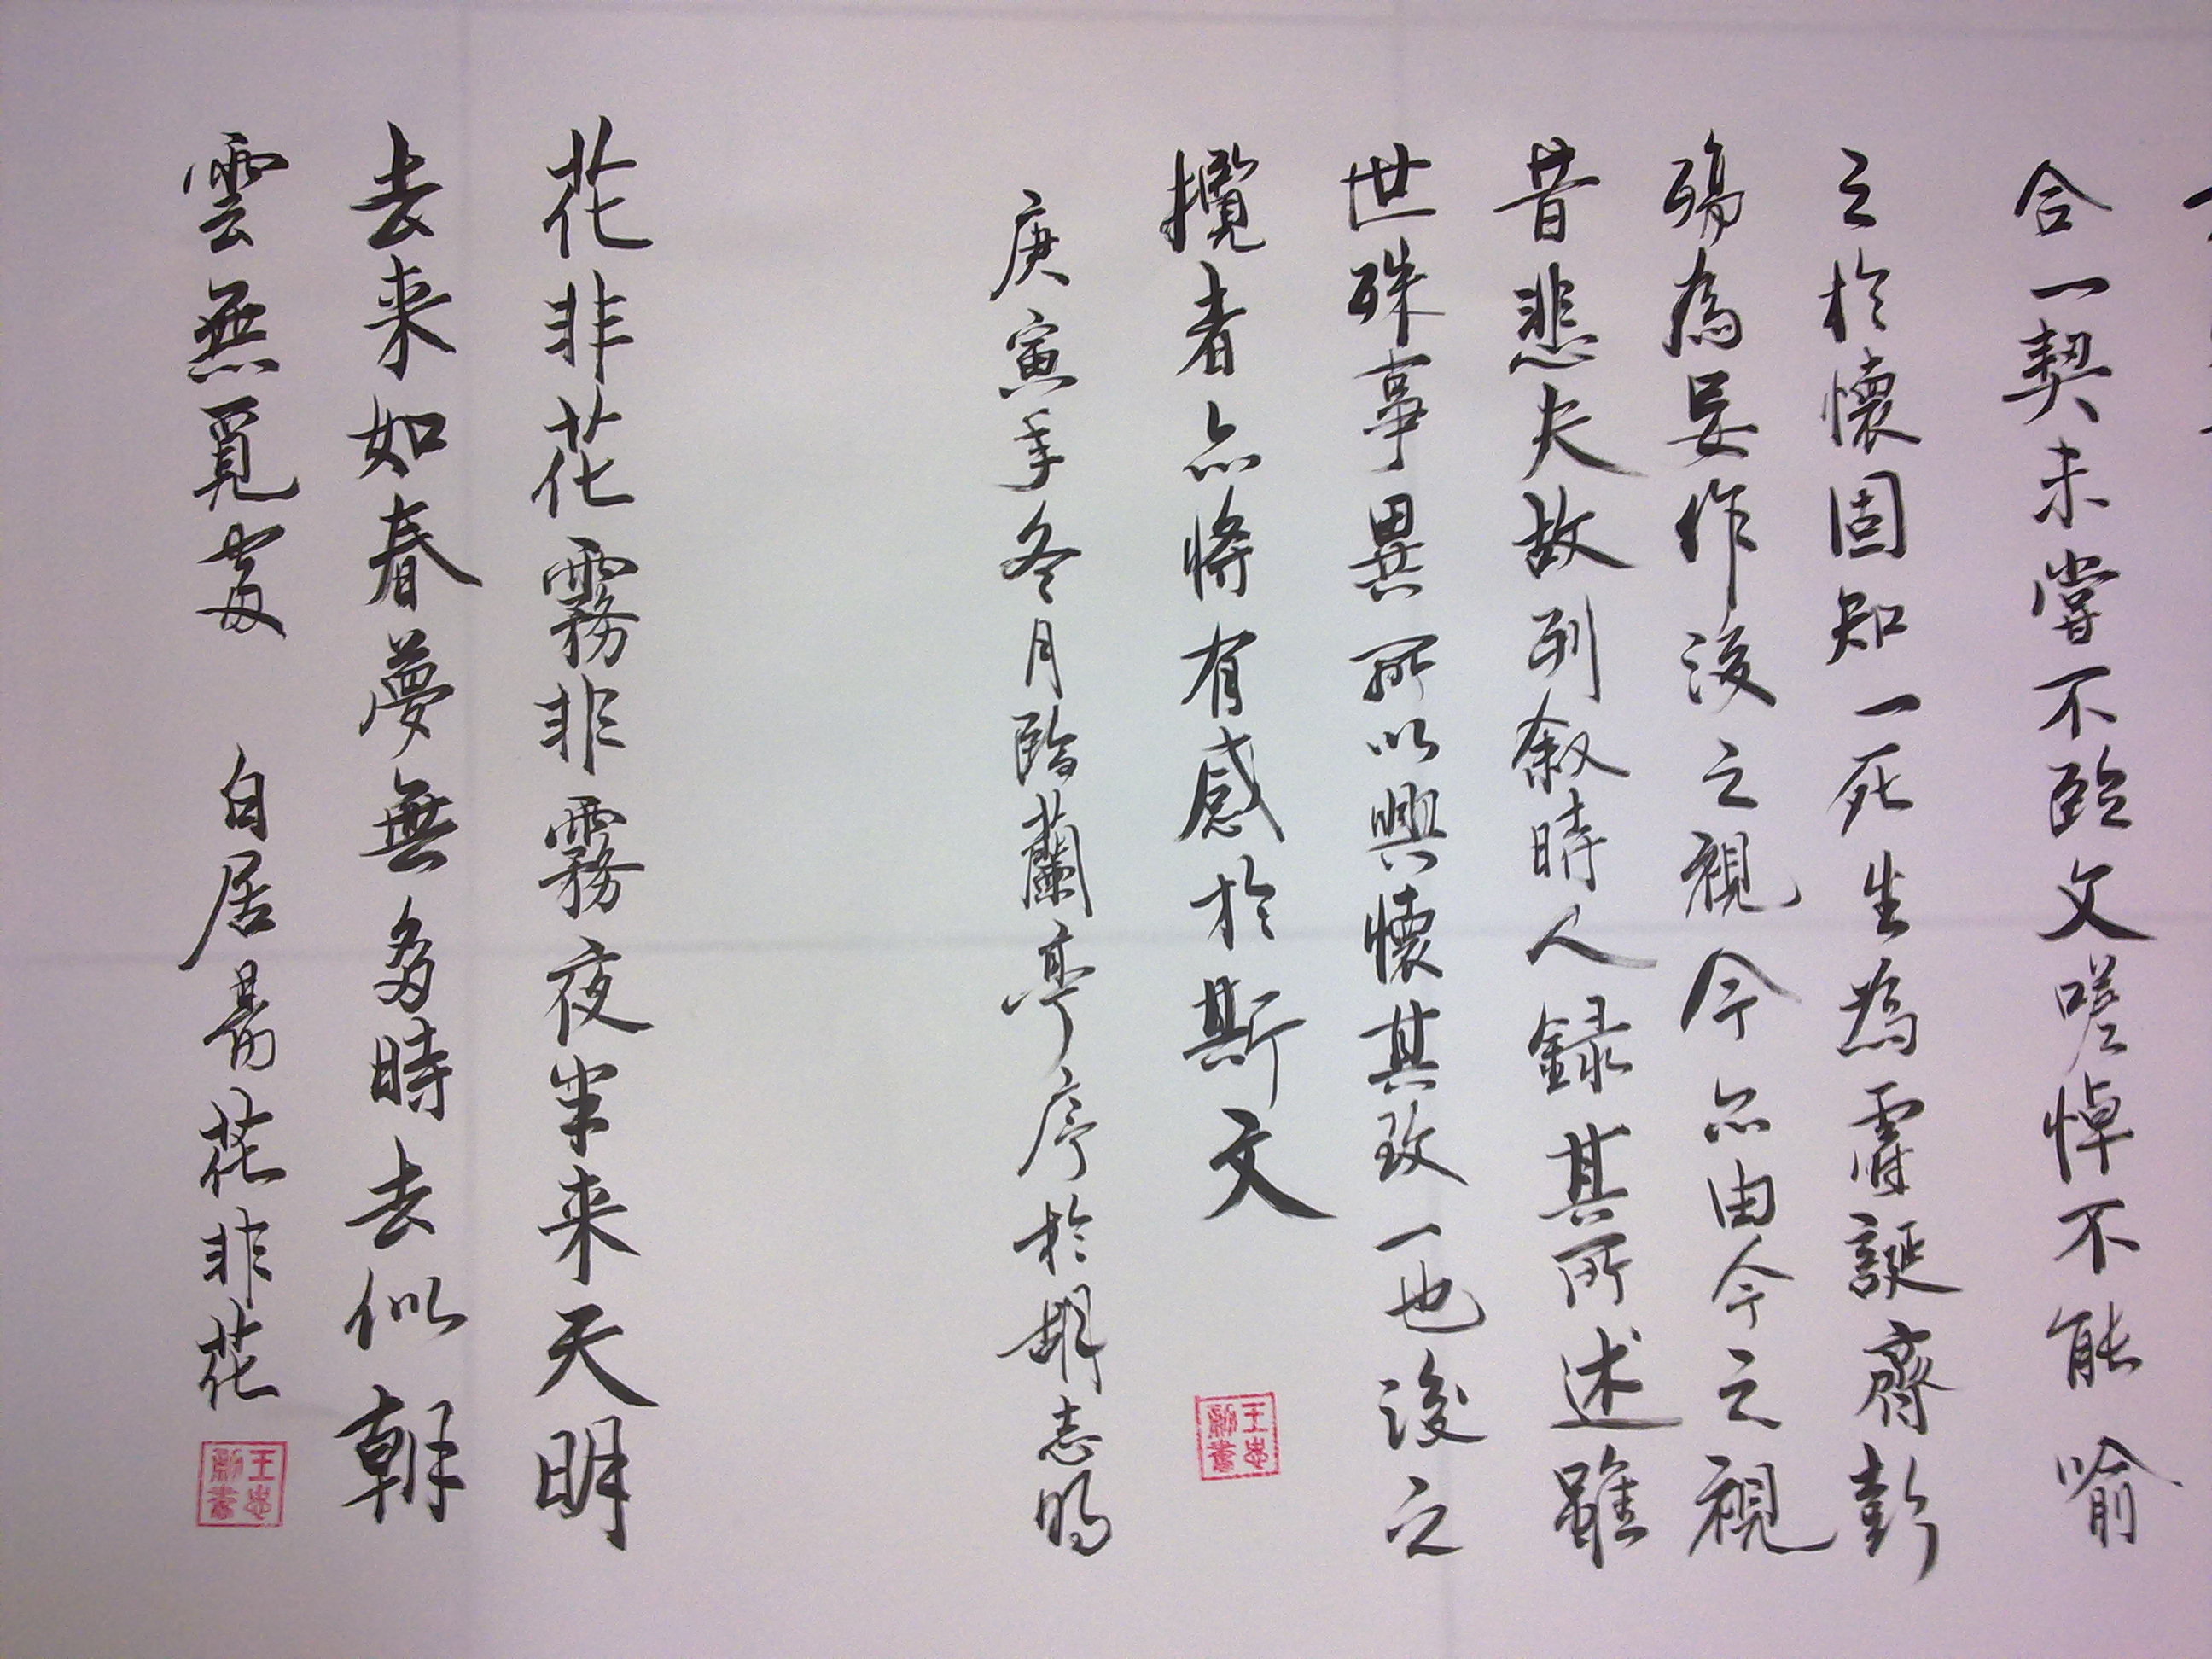 合一契未嘗不臨文嗟悼不能喻
之於懷固知一死生為虛誕齊彭
殤為妄作後之視今亦由今之視
昔悲夫故列叙時人録其所述雖
世殊事異所以興懷其致一也後之
攬者亦將有感於斯文
庚寅年冬月臨蘭亭序於
花非花霧非霧夜半来天明
去来如春夢無多時去似朝
雲無覓處 白居易花非花